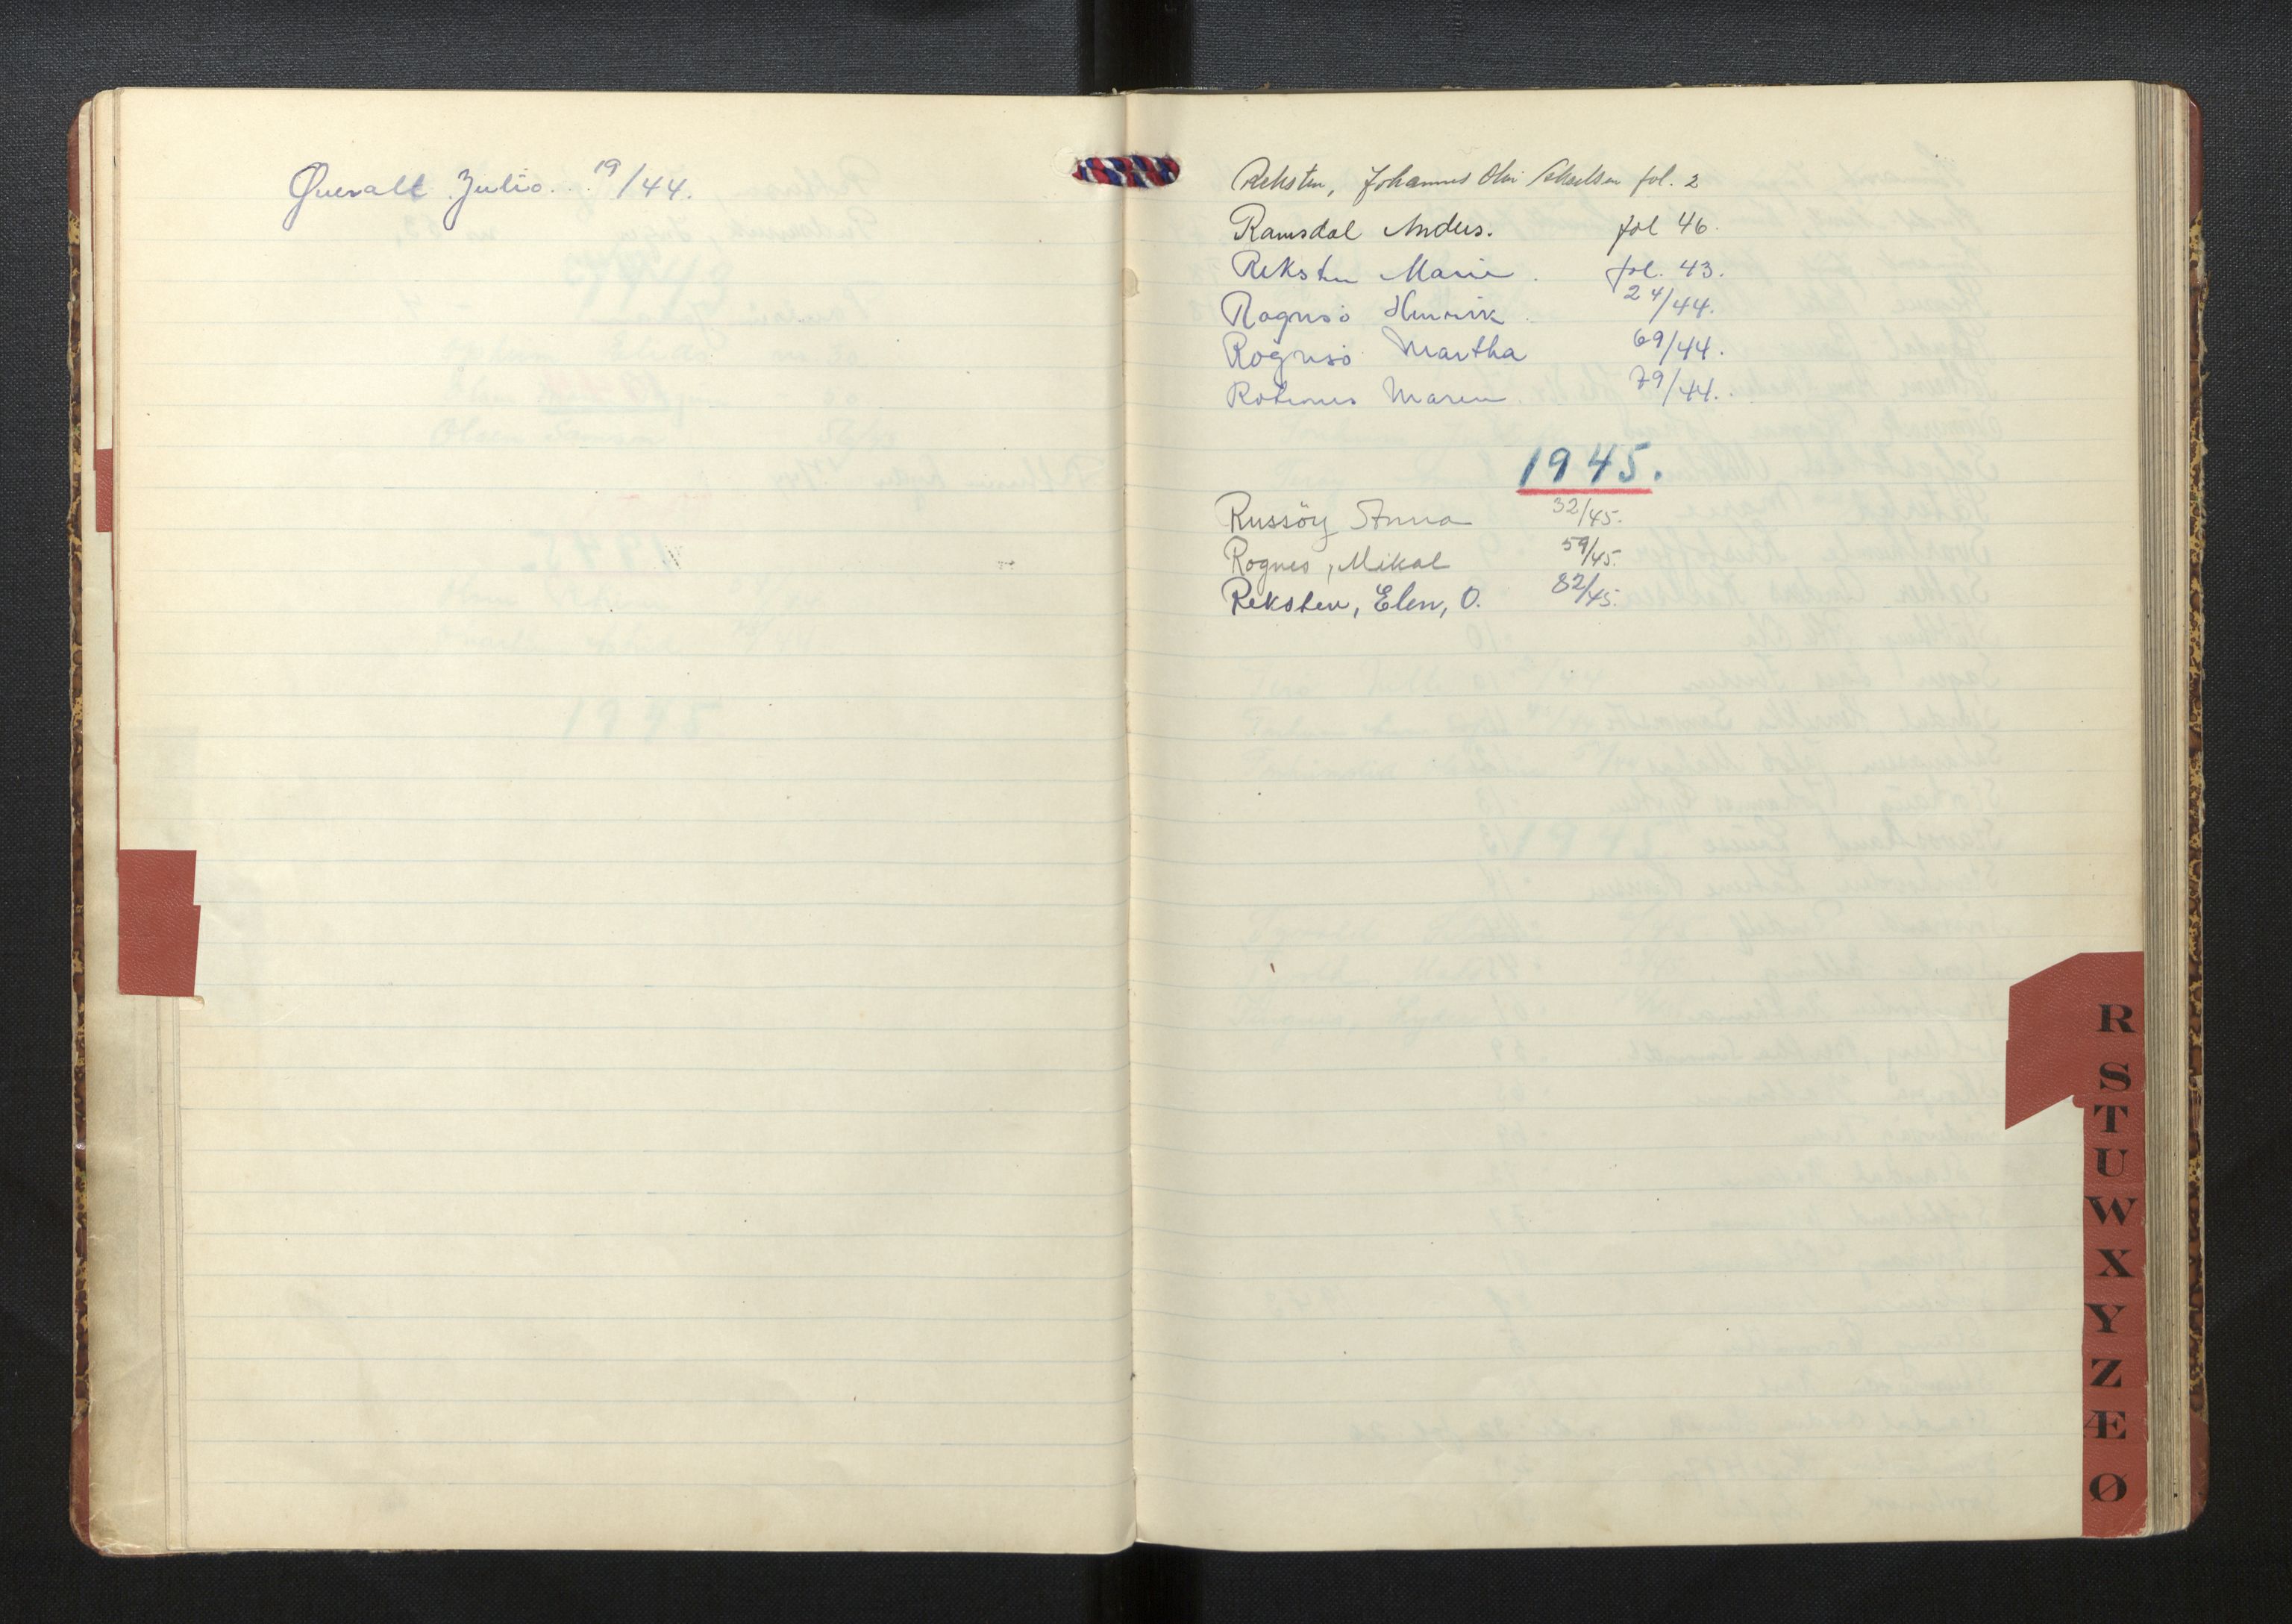 Queralt Julio. 19/44.
Reksten, Johannes Olai fol. 2
Ramsdal Anders. fol 46.
Reksten Marie. fol. 43.
Rognsø Henrik. 24/44.
Rognsø Martha 69/44.
Rotenes Maren. 79/44.
1945.
Russöy Anna 32/45.
Rognes, Mikal 59/45.
Reksten, Elen, O. 82/45.
R
S
T
U
W
X
Y
Z
Æ
Ø